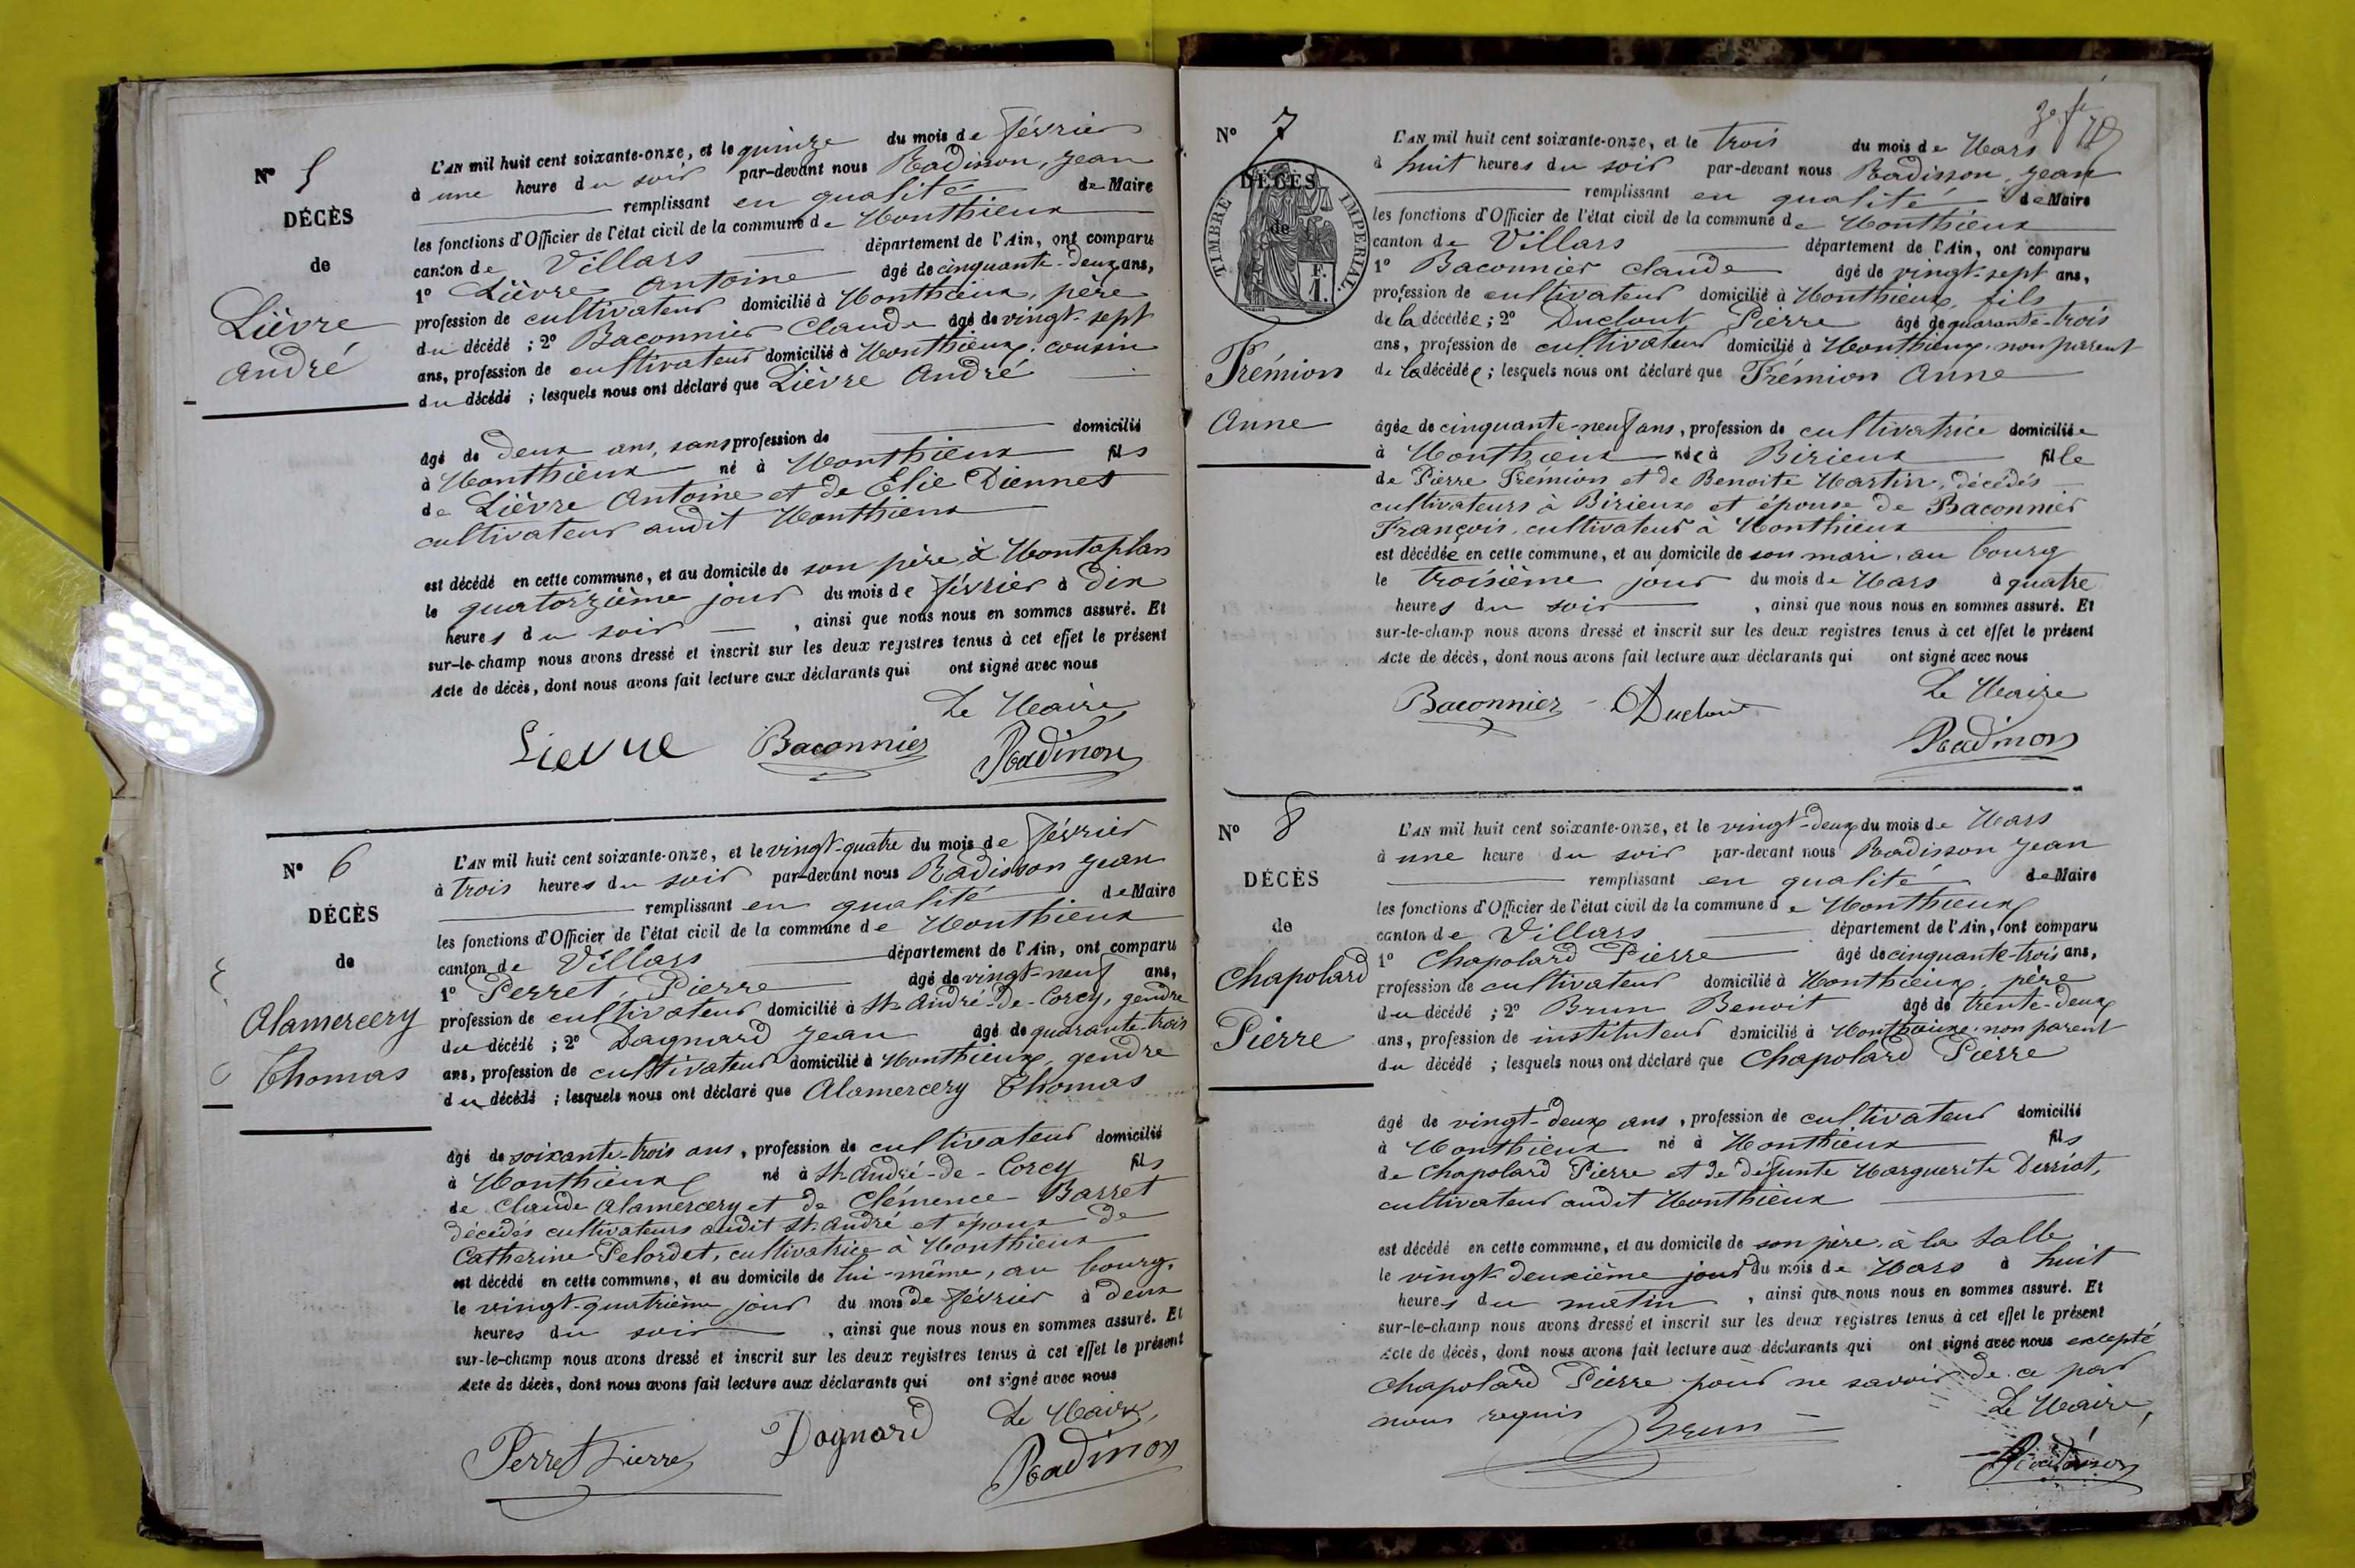 N° 5
DÉCÈS
de
Lièvre
André
L'AN mil huit cent soixante-onze, et le quinze du mois de février
à une heure du soir par-devant nous Radisson, Jean
remplissant en qualité de Maire
les fonctions d'Officier de l'état civil de la commune de Monthieux
canton de Villars département de l'Ain, ont comparu
1° Lièvre Antoine âgé de cinquante-deux ans,
profession de cultivateur domicilié à Monthieux, père
du décédé ; 2° Baconnier Claude âgé de vingt-sept
ans, profession de cultivateur domicilié à Monthieux, cousin
du décédé ; lesquels nous ont déclaré que Lièvre André
âgé de deux ans, sans profession de domicilié
à Monthieux né à Monthieux fils
de Lièvre Antoine et de Elie Diennet
cultivateur audit Monthieux
est décédé en cette commune, et au domicile de son père, à Montaplan
le quatorzième jour du mois de février à dix
heures du soir , ainsi que nous nous en sommes assuré. Et
sur-le-champ nous avons dressé et inscrit sur les deux registres tenus à cet effet le présent
Acte de décès, dont nous avons fait lecture aux déclarants qui ont signé avec nous
Le Maire,
Lievre Baconnier Radisson
N° 6
DÉCÈS
de
Alamercery
Thomas
L'AN mil huit cent soixante-onze, et le vingt-quatre du mois de février
à trois heures du soir par-devant nous Radisson Jean
remplissant en qualité de Maire
les fonctions d'Officier de l'état civil de la commune de Monthieux
canton de Villars département de l'Ain, ont comparu
1° Perret, Pierre âgé de vingt-neuf ans,
profession de cultivateur domicilié à St-André-de-Corcy, gendre
du décédé ; 2° Dagnard Jean âgé de quarante-trois
ans, profession de cultivateur domicilié à Monthieux, gendre
du décédé ; lesquels nous ont déclaré que Alamercery Thomas
âgé de soixante-trois ans, profession de cultivateur domicilié
à Monthieux né à St-André-de-Corcy fils
de Claude Alamercery et de Clémence Barret
décédés cultivateurs audit St-André et époux de
Catherine Pelordet, cultivatrice à Monthieux
est décédé en cette commune, et au domicile de lui-même, au bourg,
le vingt-quatrième jour du mois de février à deux
heures du soir , ainsi que nous nous en sommes assuré. Et
sur-le-champ nous avons dressé et inscrit sur les deux registres tenus à cet effet le présent
Acte de décès, dont nous avons fait lecture aux déclarants qui ont signé avec nous
Le Maire,
Perret Pierre Dagnard Radisson
N° 7
DÉCÈS
de
TIMBRE IMPERIAL
1 F.
Trémion
Anne
L'AN mil huit cent soixante-onze, et le trois du mois de Mars
à huit heures du soir par-devant nous Radisson, Jean
remplissant en qualité de Maire
les fonctions d'Officier de l'état civil de la commune de Monthieux
canton de Villars département de l'Ain, ont comparu
1° Baconnier Claude âgé de vingt-sept ans,
profession de cultivateur domicilié à Monthieux, fils
de la décédée ; 2° Duclout Pierre âgé de quarante-trois
ans, profession de cultivateur domicilié à Monthieux, non parent
de la décédée ; lesquels nous ont déclaré que Trémion Anne
âgée de cinquante-neuf ans, profession de cultivatrice domiciliée
à Monthieux née à Birieux fille
de Pierre Trémion et de Benoite Martin, décédés
cultivateurs à Birieux et épouse de Baconnier
François, cultivateur à Monthieux
est décédée en cette commune, et au domicile de son mari, au bourg
le troisième jour du mois de Mars à quatre
heures du soir , ainsi que nous nous en sommes assuré. Et
sur-le-champ nous avons dressé et inscrit sur les deux registres tenus à cet effet le présent
Acte de décès, dont nous avons fait lecture aux déclarants qui ont signé avec nous
Le Maire
Baconnier Duclout Radisson
N° 8
DÉCÈS
de
Chapolard
Pierre
L'AN mil huit cent soixante-onze, et le vingt-deux du mois de Mars
à une heure du soir par-devant nous Radisson Jean
remplissant en qualité de Maire
les fonctions d'Officier de l'état civil de la commune de Monthieux
canton de Villars département de l'Ain, ont comparu
1° Chapolard Pierre âgé de cinquante-trois ans,
profession de cultivateur domicilié à Monthieux, père
du décédé ; 2° Brun Benoit âgé de trente-deux
ans, profession de instituteur domicilié à Monthieux, non parent
du décédé ; lesquels nous ont déclaré que Chapolard Pierre
âgé de vingt-deux ans, profession de cultivateur domicilié
à Monthieux né à Monthieux fils
de Chapolard Pierre et de défunte Marguerite Derriot,
cultivateur audit Monthieux
est décédé en cette commune, et au domicile de son père, à la Salle
le vingt-deuxième jour du mois de Mars à huit
heures du matin , ainsi que nous nous en sommes assuré. Et
sur-le-champ nous avons dressé et inscrit sur les deux registres tenus à cet effet le présent
Acte de décès, dont nous avons fait lecture aux déclarants qui ont signé avec nous excepté
Chapolard Pierre pour ne savoir de ce par
nous requis
Le Maire,
Brun Radisson